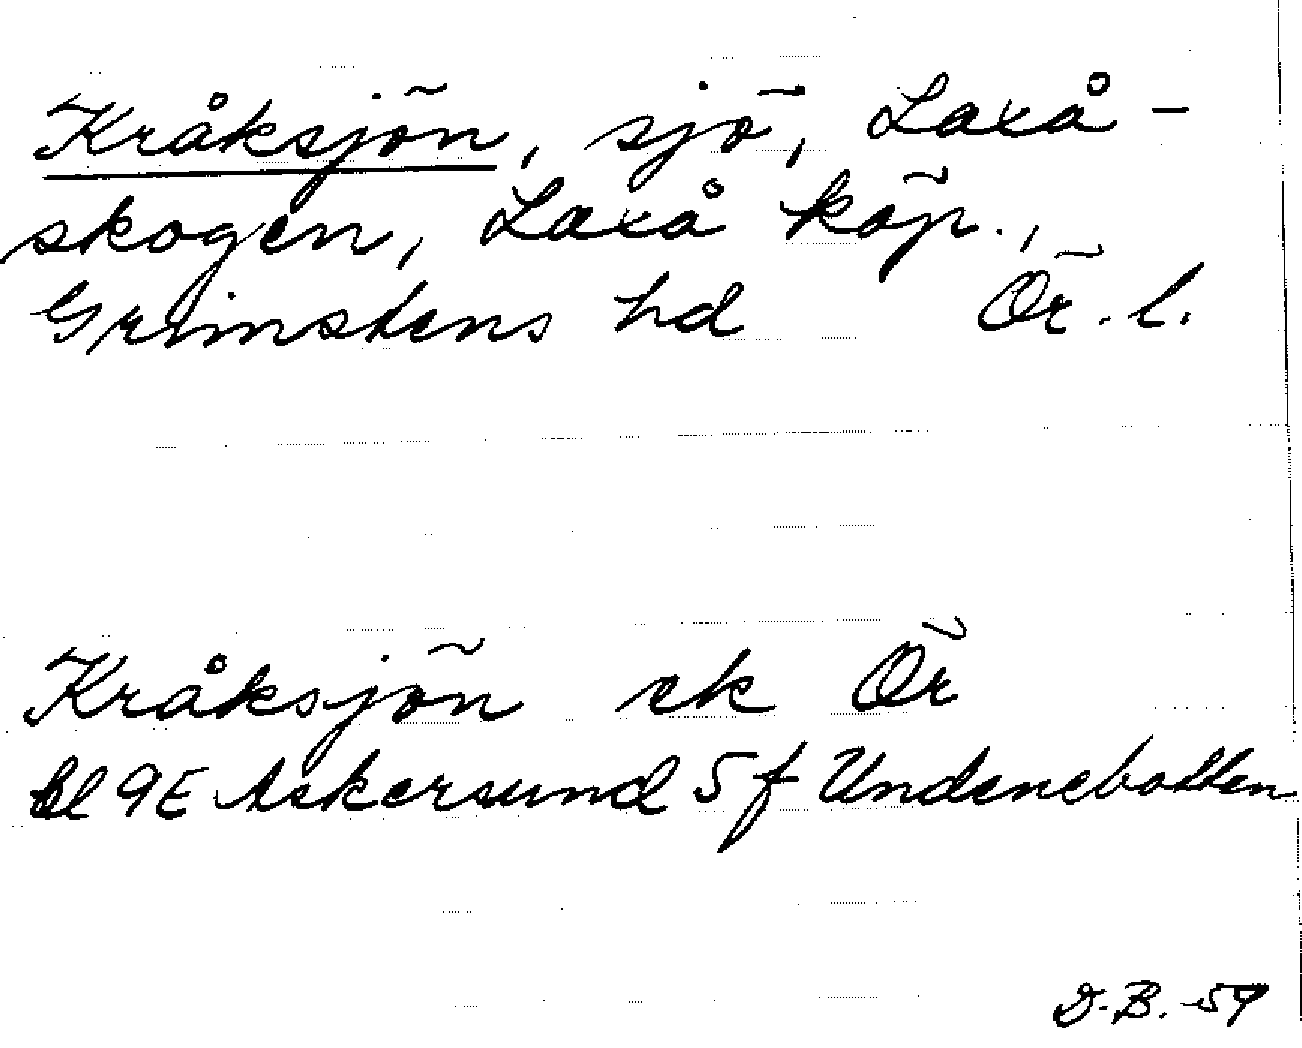 Kråksjön, sjö, Laxå-
skogen, Laxå köp.,
Grimstens hd Ör. l.
Kråksjön ek Ör
bl 9E Askersund 5f Undenebotten
D.B. -59